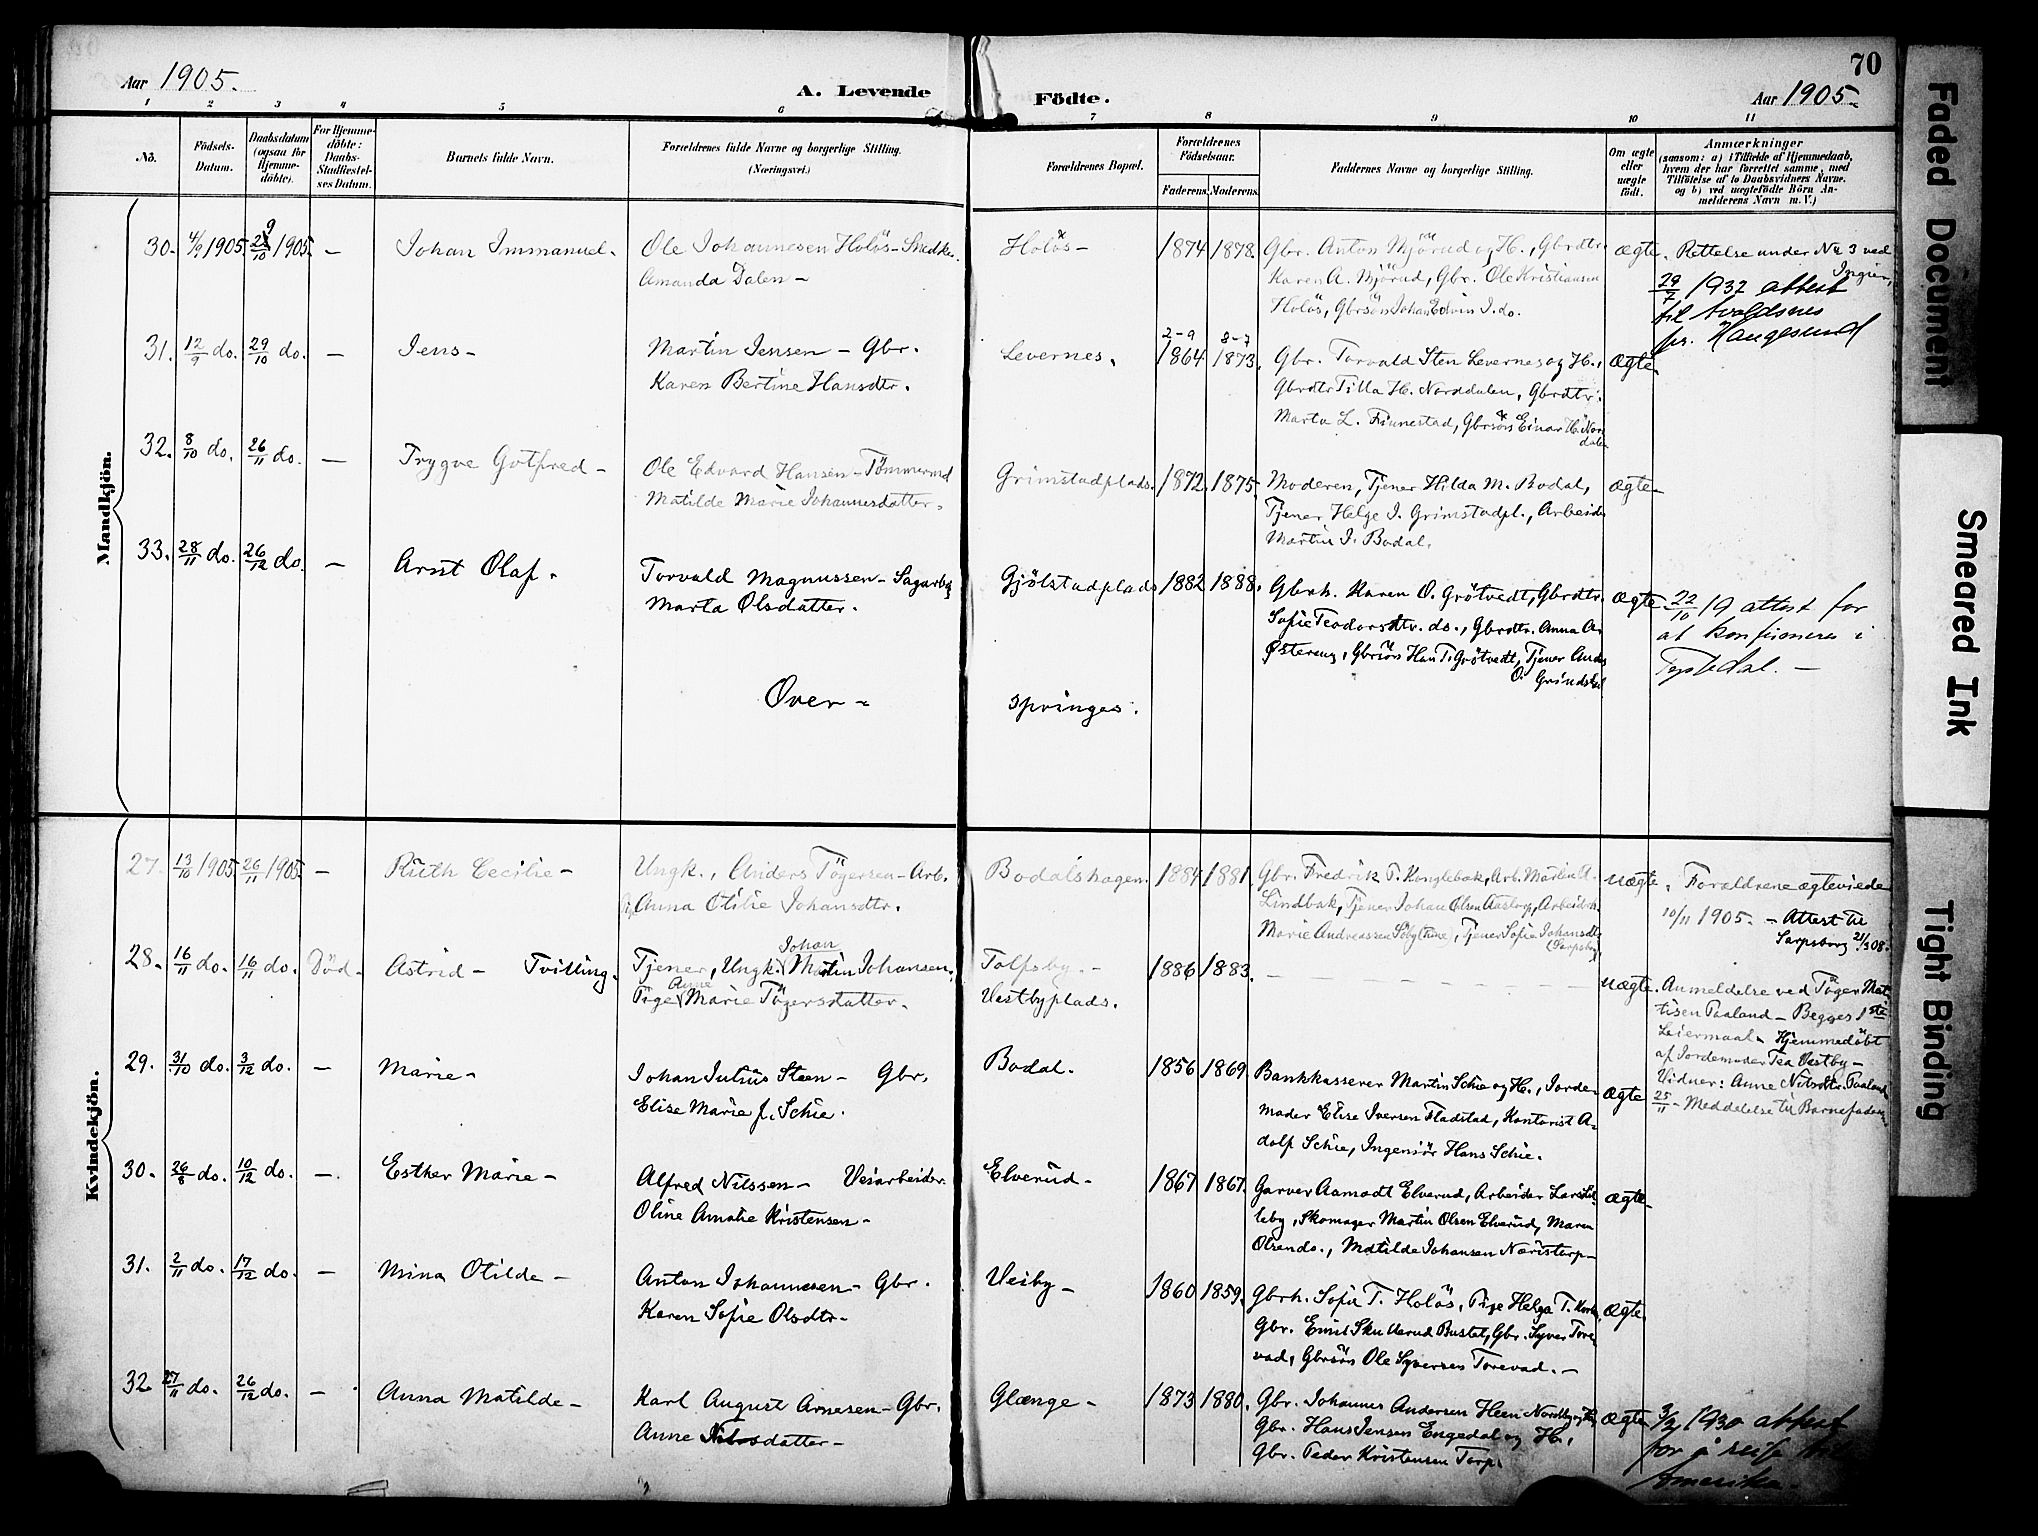 Aar 1905.
A. Levende Födte.
70
Aar 1905.
1 2 3 4 5 6 7 8 9 10 11
No.
Födsels-Datum.
Daabsdatum (ogsaa for Hjemme-döbte).
For Hjemme-döbte: Daabs-Stadfæstel-ses Datum.
Barnets fulde Navn.
Forældrenes fulde Navne og borgerlige Stilling. (Næringsvei.)
Forældrenes Bopæl.
Forældrenes Födselsaar.
Faderens. Moderens.
Faddernes Navne og borgerlige Stilling.
Om ægte eller uægte födt.
Anmærkninger
(saasom: a) i Tilfælde af Hjemmedaab,
hvem der har forrettet samme, med
Tilföielse af to Daabsvidners Navne.
og b) ved uægtefödte Börn An-
melderens Navn m. V.)
Mandkjön.
30. 4/9 1905. 1905. — Johan Immanuel. Ole Johannesen Holös - Snedker.
Amanda Dalen —
Holös — 1874 1878. Gbr. Anton Mjörud og H., Gbrdtr.
Karen A. Mjörud, Gbr. Ole Kristiansen
Holös, Gbrsön Johan Edvin I. do.
ægte. Rettelse under No. 3 ved
29/7 1932 attest
til Avaldsnes
pr. Haugesund
31. 12/9 do. 29/10 do. — Jens — Martin Jensen — Gbr.
Karen Bertine Hansdtr.
Levernes. 2-9 1864 8-7 1873. Gbr. Torvald Sten Levernes og H.,
Gbrdtr Tilla H. Norddalen, Gbrdtr.
Marta L. Finnestad, Gbrsön Einar H. Nord
dalen
ægte.
32. 8/10 do. 26/11 do. — Trygve Gotfred — Ole Edvard Hansen — Tömmermd
Matilde Marie Johannesdatter.
Grimstadplads. 1872. 1875. Moderen, Tjener Hilda M. Bodal,
Tjener Helge J. Grimstadpl., Arbeider
Martin J. Bodal.
ægte —
33. 28/11 do. 26/12 do. — Arnt Olaf. Torvald Magnussen — Sagarb.
Marta Olsdatter.
Gjölstadplads 1882 1888. Gbrh. Karen O. Grötvedt, Gbrdtr.
Sofie Teodorsdtr. do., Gbrdtr. Anna A.
Östereng, Gbrsön Han T. Grötvedt, Tjener Anders
O.
ægte — 22/10 19 attest for
at konfirmeres i
Over — springes.
Kvindekjön.
27. 13/10 1905 26/11 1905 — Ruth Cecilie — Ungk., Anders Tögersen — Arb.
Anna Otilie Johansdtr.
Bodalshagen. 1884 1881. Gbr. Fredrik T. Konglebak, Arb. Martin A.
Lindbak, Tjener Johan Olsen Aastorp, Arbeidsk.
Marie Andreassen, Tjener Sofie Johansdtr
(Sarpsborg)
uægte. Foraldrene ægteviede
10/11 1905. — Attest til
Sarpsborg 21/3 08.
28. 16/11 do. 16/11 do. Död — Astrid — Tvilling. Tjener, Ungk. Johan Martin Johansen.
Pige Anne Marie Tögersdatter.
Tolfsby. —
Vestbyplads.
1886 1883. — uægte. Anmeldelse ved Töger Mat-
tisen Paaland — Begges 1ste
Leiermaal — Hjemmedöbt
af Jordemoder Tea Vestby —
Vidner: Anne Nilsdtr. Paaland
25/11 — Meddelelse til Barnefaderen
29. 31/10 do. 3/12 do. — Marie — Johan Julius Steen — Gbr.
Elise Marie f. Schie.
Bodal. 1856 1869. Bankkasserer Martin Schie og H., Jorde-
moder Elise Iversen Fladstad, Kontorist A-
dolf Schie, Ingeniör Hans Schie.
ægte
30. 26/8 do. 10/12 do. — Esther Marie — Alfred Nilssen — Veiarbeider.
Oline Amalie Kristensen —
Elverud — 1867 1867. Garver Aamodt Elverud, Arbeider Lars
leby, Skomager Martin Olsen Elverud, Maren
Olsen do., Matilde Johansen Næristorp —
ægte —
31. 2/11 do. 17/12 do. — Mina Otilde — Anton Johannesen — Gbr.
Karen Sofie Olsdtr —
Veiby — 1860 1859. Gbrh. Sofie T. Holös, Pige Helga T.
Gbr. Emil Skullerud Bustet, Gbr. Syver Tore
vad, Gbrsön Ole Syversen Torevad. —
ægte.
32. 27/11 do. 26/12 do. — Anna Matilde — Karl August Arnesen — Gbr.
Anne Nilsdatter —
Glænge — 1873 1880. Gbr. Johannes Andersen Heen Nordby og H.
Gbr. Hans Jensen Engedal og H.,
Gbr. Peder Kristensen Torp.
ægte 3/2 1930 attest
for å reise til
Amerika.
Faded Document
Smeared Ink
Tight Binding